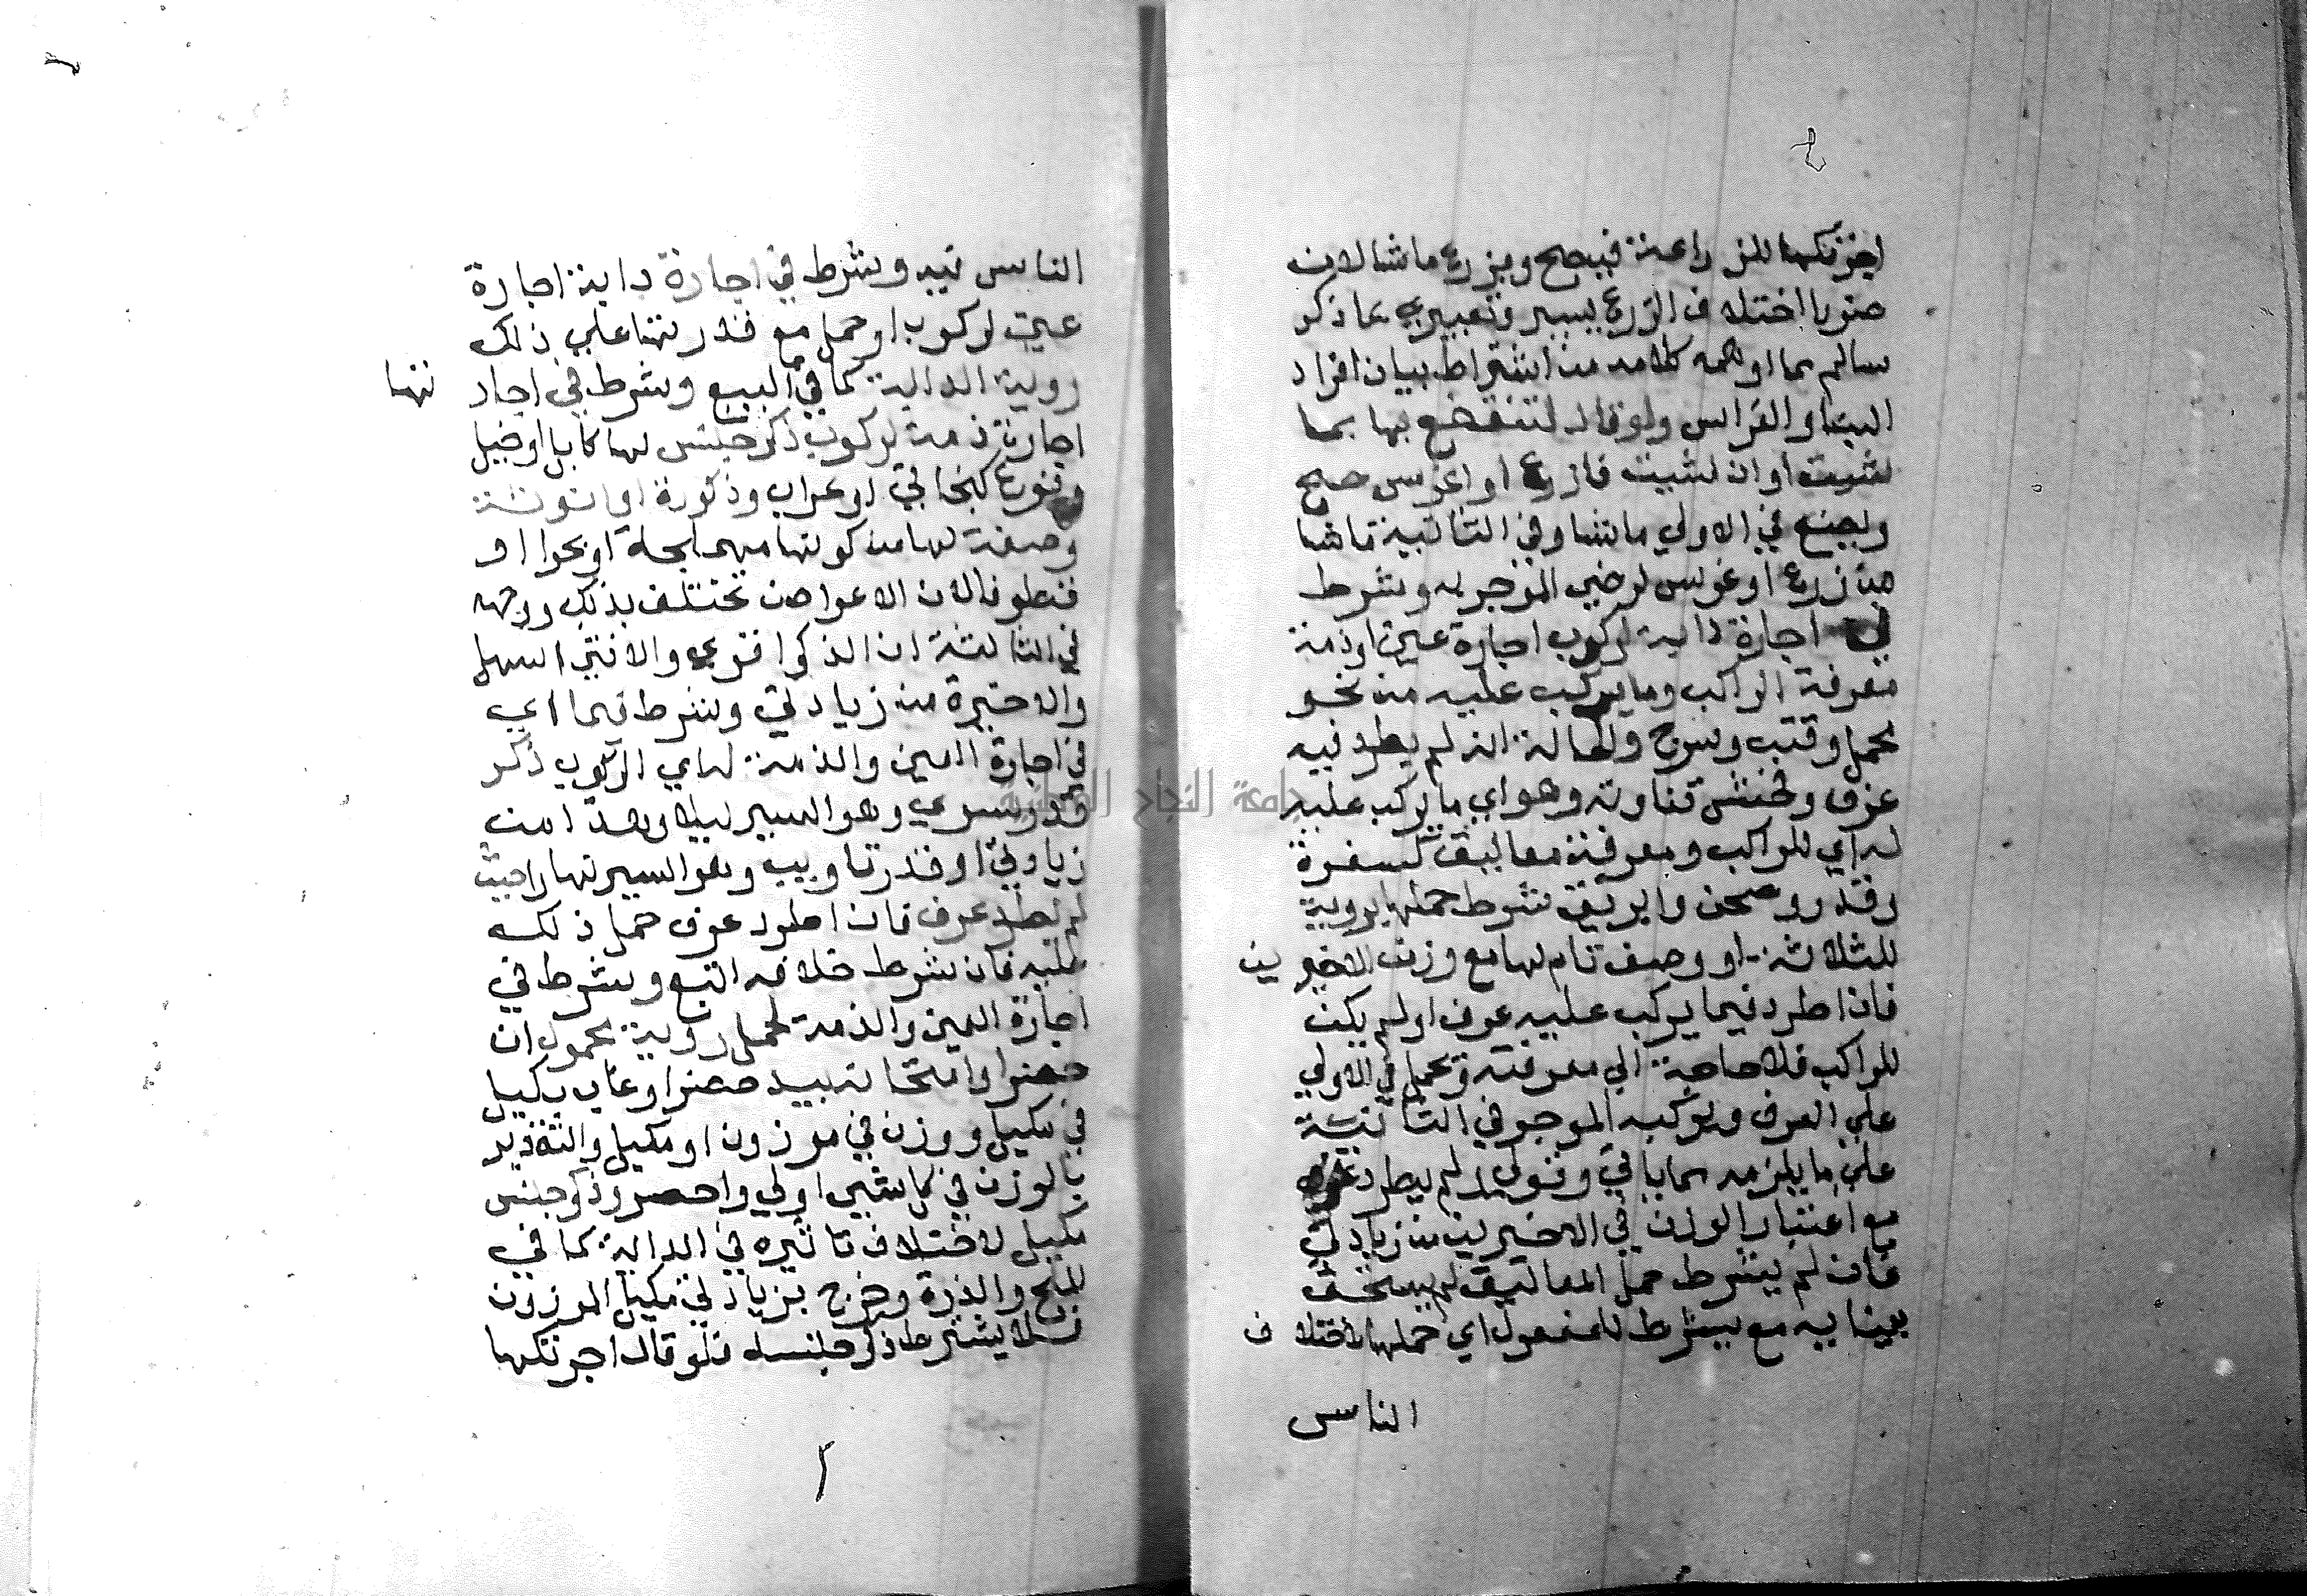 اجرتكها للزراعة فيصح ويزرع ما شا لان
ضررا اختلاف الزرع يسير وتعبيري بما ذكر
سالم مما اوهمه كلامه من اشتراط بيان افراد
البنا والغراس ولو قال لتنتفع بها بما
شيت او ان شيت فازرع او اغرس صح
ويصنع في الاولي ما شا وفي الثانية ما شا
من زرع او غرس لرضي الموجر به وشرط
في اجارة دابة لركوب اجارة عين او ذمة
معرفة الراكب وما يركب عليه من نحو
محمل وقتب وسرج والحالة انه لم يطرد فيه
عرف وفحش تفاوته وهو اي ما يركب عليه
له اي للراكب ومعرفة معاليق كسفرة
وقدر وصحن وابريق شرط حملها بروية
للثلاثة او وصف تام لها مع وزن الاخيرين
فان اطرد فيما يركب عليه عرف او لم يكن
للراكب فلا حاجة الي معرفته ويحمل في الاولي
علي العرف ويركبه الموجر في الثانية
علي ما يليق وقولي ولم يطرد عرف
مع اعتبار الوزن في الاخيرين من زيادتي
فان لم يشرط حمل المعاليق لم يستحق
ببنايه مع يشرط للمفعول اي حملها لاختلاف
الناس
الناس فيه وشرط في اجارة دابة اجارة
عين لركوب او حمل مع قدرتها علي ذلك
روية الدابة كما في البيع وشرط في اجار تها
اجارة ذمة لركوب ذكر جنس لها كابل او خيل
ونوع كبخاتي او عراب وذكورة او انوثة
وصفة لها من كونها مهملجة او بحرا او
قطوفا لان الاغراض تختلف بذلك ووجهه
في الثالثة ان الذكر اقوي والانثي اسهل
والاخيرة من زيادتي وشرط فيهما اي
في اجارة العين والذمة له اي الركوب ذكر
قدر سري وهو السير ليلا وهذا من
زيادتي او قدر تاويب وهو السير نهارا حيث
لم يطرد عرف فان اطرد عرف حمل ذلك
عليه فان شرط خلافه اتبع وشرط في
اجارة العين والذمة لحمل روية محمول ان
حضر او امتحانه بيد حضر او غاب بكيل
في مكيل ووزن في موزون او مكيل والتقدير
بالوزن في كل شي اولي واحصر وذكر جنس
مكيل لاختلاف تاثيره في الدابة كما في
الملح والذرة وخرج بزيادتي مكيل الموزون
فلا يشترط ذكر جنسه فلو قال اجرتكها
جامعة النجاح الوطنية